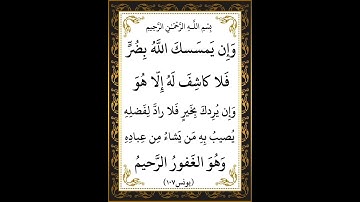 بِسْمِ اللَّهِ الرَّحْمَٰنِ الرَّحِيمِ
وَإِن يَمسَسكَ اللَّهُ بِضُرٍّ
فَلا كاشِفَ لَهُ إِلّا هُوَ
وَإِن يُرِدكَ بِخَيرٍ فَلا رادَّ لِفَضلِهِ
يُصيبُ بِهِ مَن يَشاءُ مِن عِبادِهِ
وَهُوَ الغَفورُ الرَّحيمُ
(يونس١٠٧)